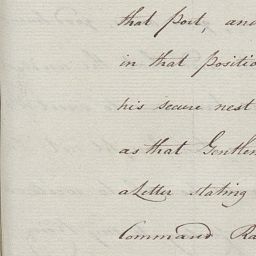 that port, and
in that positio
his secure nest
as that Gentlem
a Letter stating
Command Ra